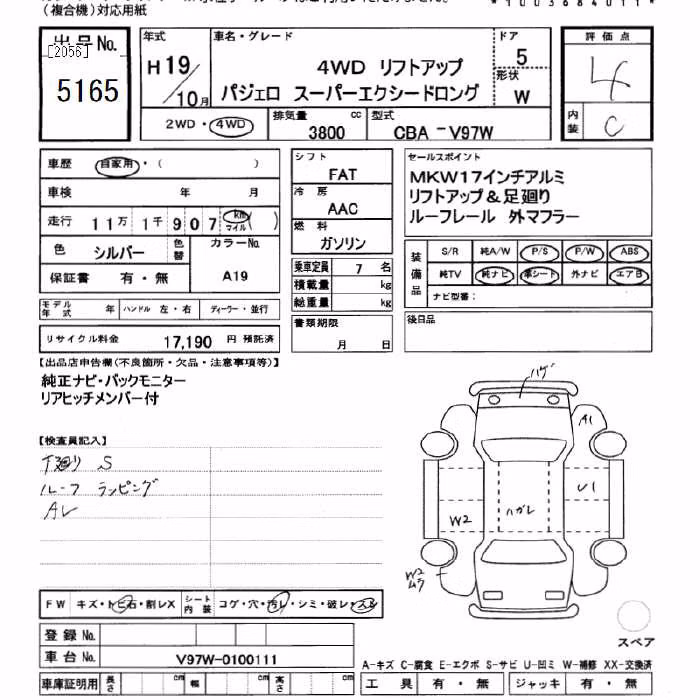 （複合機）対応用紙
*1003684011*
出品No.
[2056]
5165
年式
H19/10月
車名・グレード
4WD リフトアップ
パジェロ スーパーエクシードロング
ドア
5
形状
W
評価点
4
内装
C
2WD・4WD
排気量
3800 cc
型式
CBA-V97W
車歴 自家用・( )
車検 年 月
走行 11万1千907 km マイル ( )
色 シルバー
色替
カラーNo.
A19
保証書 有・無
シフト
FAT
冷房
AAC
燃料
ガソリン
乗車定員 7 名
積載量 kg
総重量 kg
書類期限
月 日
セールスポイント
MKW17インチアルミ
リフトアップ＆足廻り
ルーフレール 外マフラー
装備品
S/R 純A/W P/S P/W ABS
純TV 純ナビ 革シート 外ナビ エアB
ナビ型番：
後日品
モデル年式 年 ハンドル 左・右 ディーラー・並行
リサイクル料金 17,190 円 預託済
【出品店申告欄(不良箇所・欠品・注意事項等)】
純正ナビ・バックモニター
リアヒッチメンバー付
【検査員記入】
下廻り S
ルーフ ラッピング
AL
ハゲ
A1
U1
W2
ハガレ
W2
ムラ
FW キズ・トビ石・割レX
シート内装 コゲ・穴・汚レ・シミ・破レ・スレ
登録No.
車台No. V97W-0100111
車庫証明用 長さ cm 幅 cm 高さ cm
スペア
A-キズ C-腐食 E-エクボ S-サビ U-凹ミ W-補修 XX-交換済
工具 有・無 ジャッキ 有・無